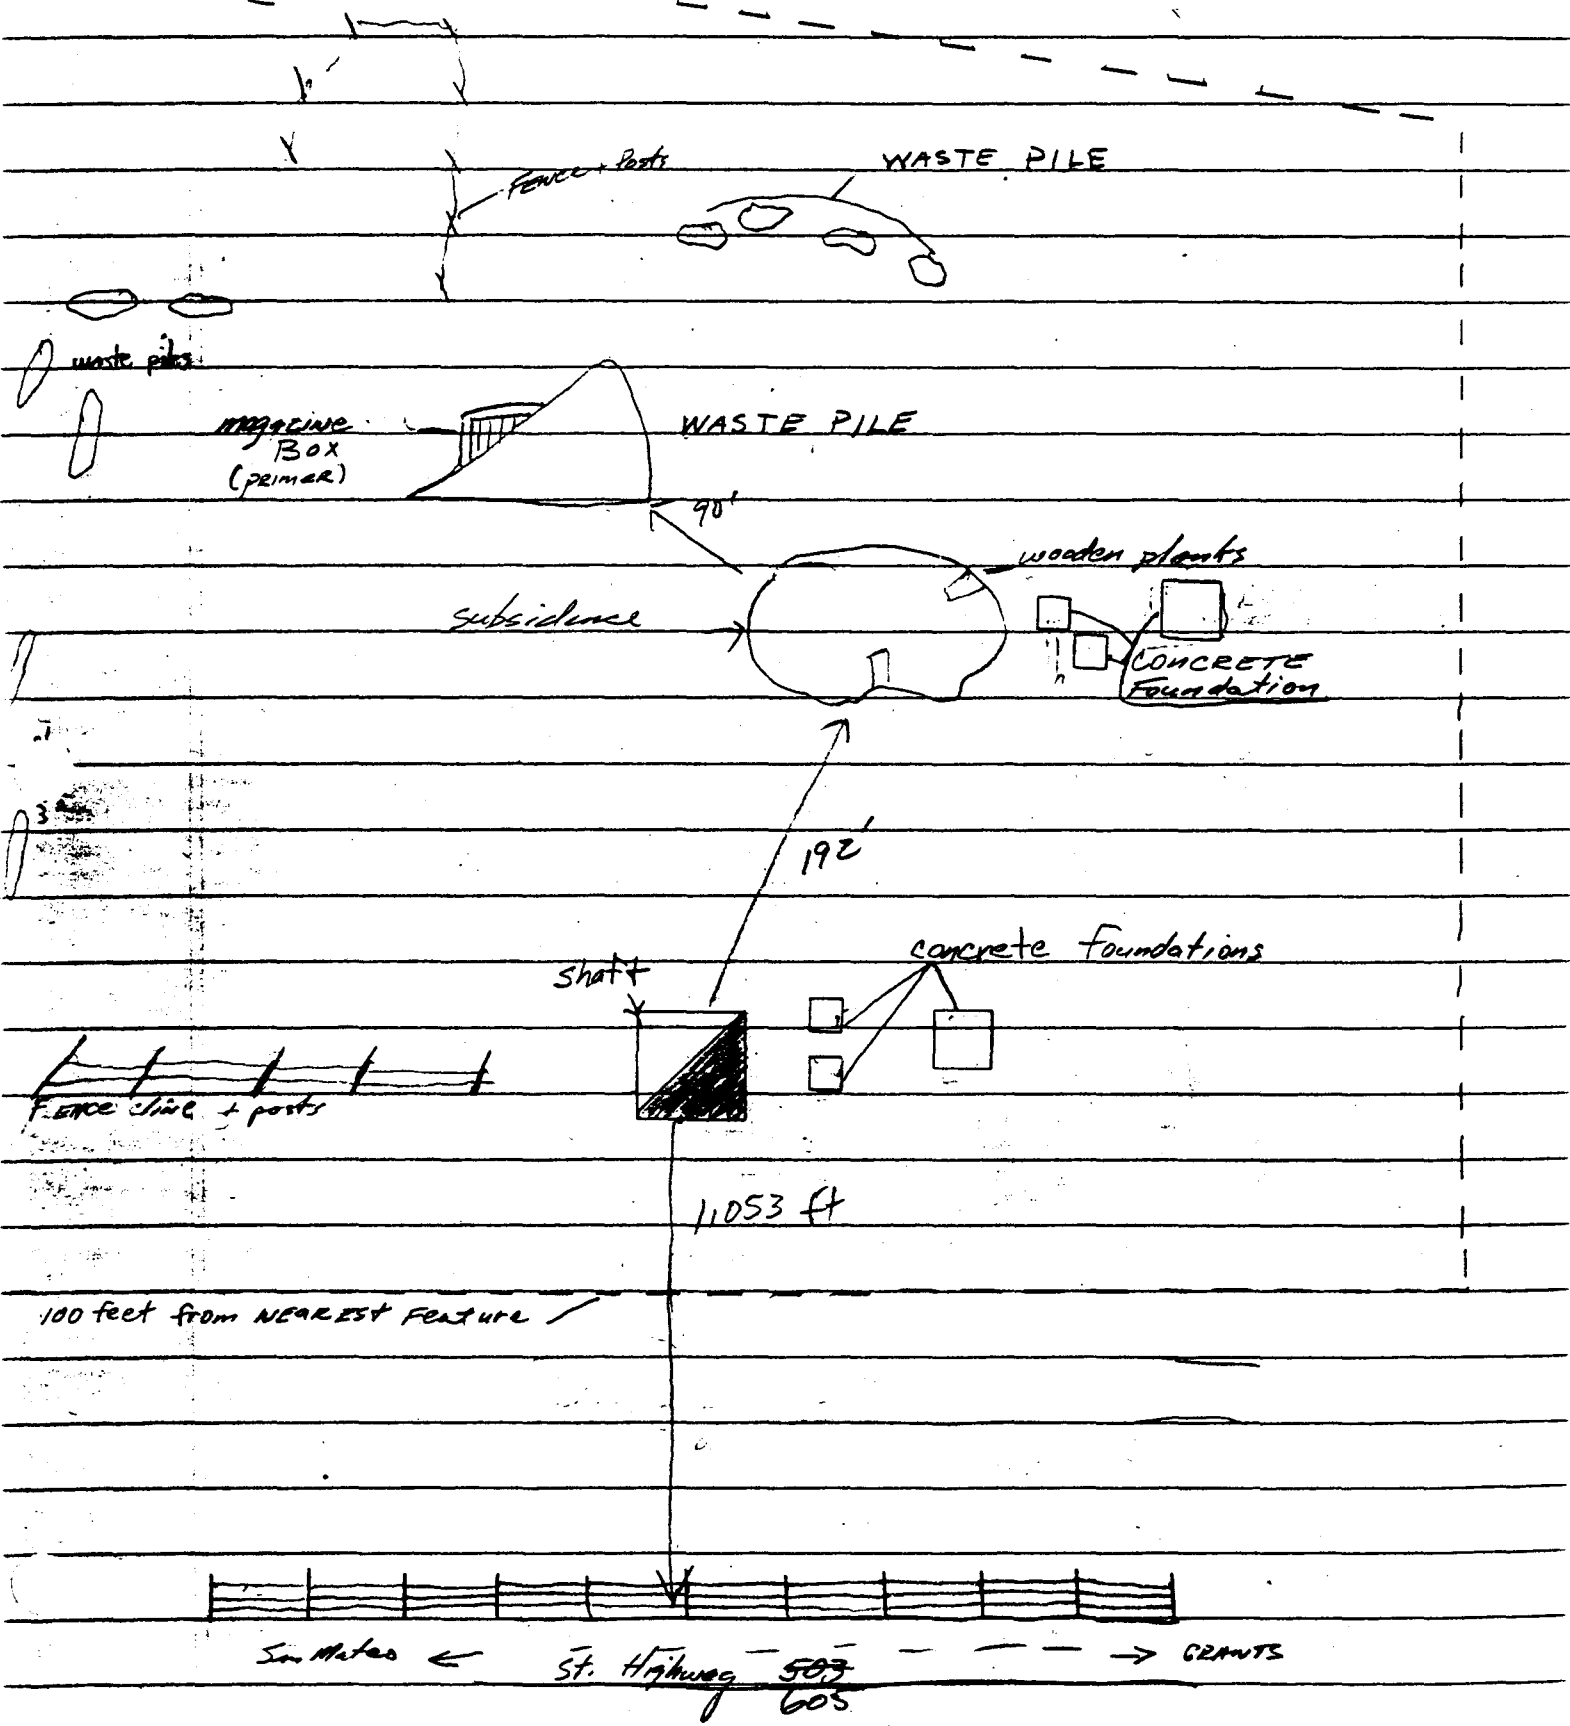 WASTE PILE
Fence + Posts
waste piles
magazine
Box
(primer)
WASTE PILE
90'
wooden planks
subsidence
CONCRETE
Foundation
192'
concrete foundations
shaft
Fence line + posts
1,053 ft
100 feet from NEAREST Feature
San Mateo ← → GRANTS
St. Highway 503
605